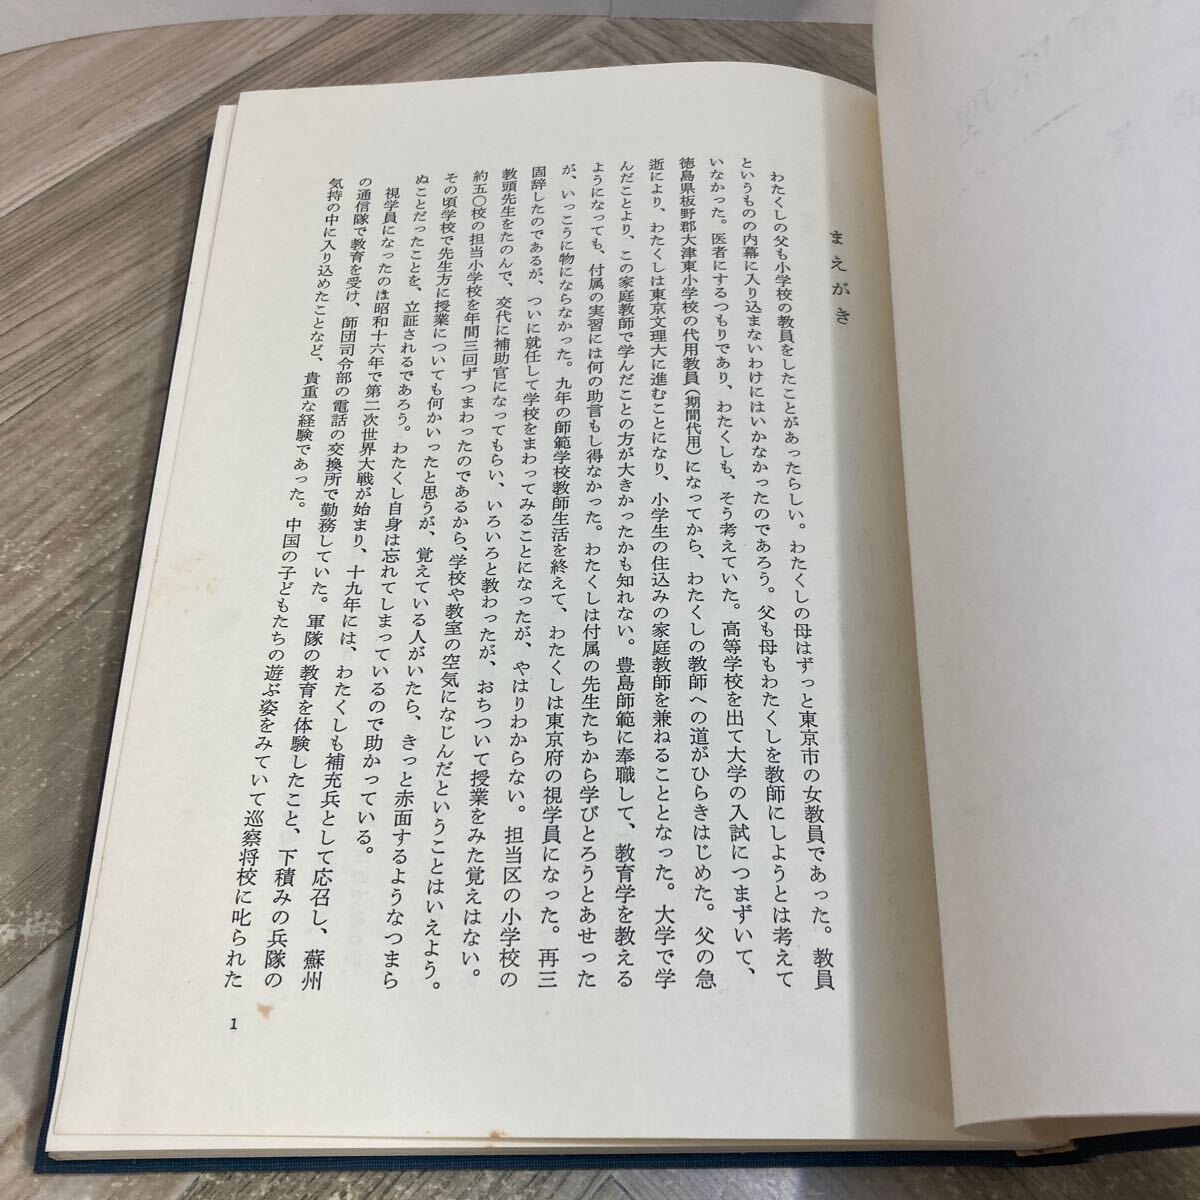 まえがき
わたくしの父も小学校の教員をしたことがあったらしい。わたくしの母はずっと東京市の女教員であった。教員
というものの内幕に入り込まないわけにはいかなかったのであろう。父も母もわたくしを教師にしようとは考えて
いなかった。医者にするつもりであり、わたくしも、そう考えていた。高等学校を出て大学の入試につまずいて、
徳島県板野郡大津東小学校の代用教員(期間代用)になってから、わたくしの教師への道がひらきはじめた。父の急
逝により、わたくしは東京文理大に進むことになり、小学生の住込みの家庭教師を兼ねることとなった。大学で学
んだことより、この家庭教師で学んだことの方が大きかったかも知れない。豊島師範に奉職して、教育学を教える
ようになっても、付属の実習には何の助言もし得なかった。わたくしは付属の先生たちから学びとろうとあせった
が、いっこうに物にならなかった。九年の師範学校教師生活を終えて、わたくしは東京府の視学員になった。再三
固辞したのであるが、ついに就任して学校をまわってみることになったが、やはりわからない。担当区の小学校の
教頭先生をたのんで、交代に補助官になってもらい、いろいろと教わったが、おちついて授業をみた覚えはない。
約五〇校の担当小学校を年間三回ずつまわったのであるから、学校や教室の空気になじんだということはいえよう。
その頃学校で先生方に授業についても何かいったと思うが、覚えている人がいたら、きっと赤面するようなつまら
ぬことだったことを、立証されるであろう。わたくし自身は忘れてしまっているので助かっている。
視学員になったのは昭和十六年で第二次世界大戦が始まり、十九年には、わたくしも補充兵として応召し、蘇州
の通信隊で教育を受け、師団司令部の電話の交換所で勤務していた。軍隊の教育を体験したこと、下積みの兵隊の
気持の中に入り込めたことなど、貴重な経験であった。中国の子どもたちの遊ぶ姿をみていて巡察将校に叱られた
1